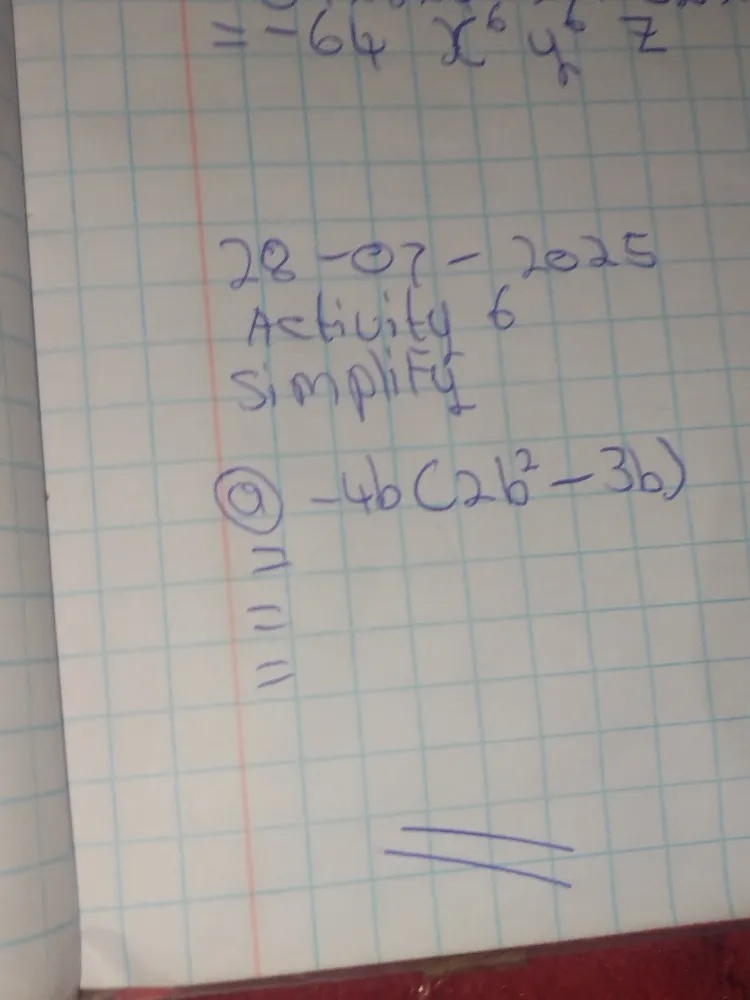 = -64 x⁶ y⁶ z
28-07-2025
Activity 6
Simplify
(a) -4b(2b² - 3b)
=
=
=